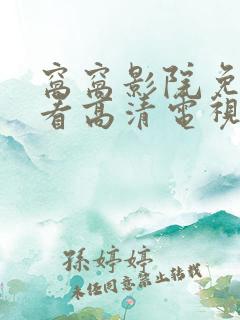 窝窝影院免
看高清电视
孫婷婷
未经同意禁止转载